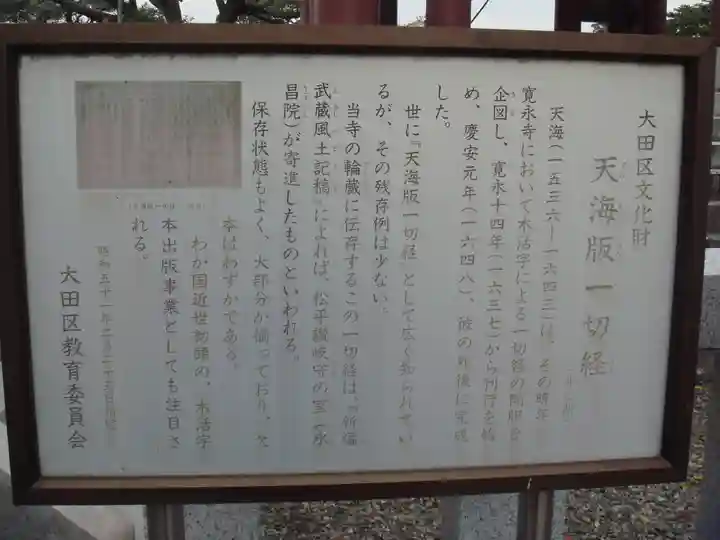 大田区文化財
天海版一切経
天海(一五三六ー一六四三)は、その晩年
寛永寺において木活字による一切経の開版を
企図し、寛永十四年(一六三七)から刊行を始
め、慶安元年(一六四八)、彼の死後に完成
した。
世に『天海版一切経』として広く知られてい
るが、その残存例は少ない。
当寺の輪蔵に伝存するこの一切経は、『新編
武蔵風土記稿』によれば、松平讃岐守の室(永
昌院)が寄進したものといわれる。
保存状態もよく、大部分が揃っており、欠
本はわずかである。
わが国近世初頭の、木活字
本出版事業としても注目さ
れる。
昭和五十一年二月二十五日
大田区教育委員会